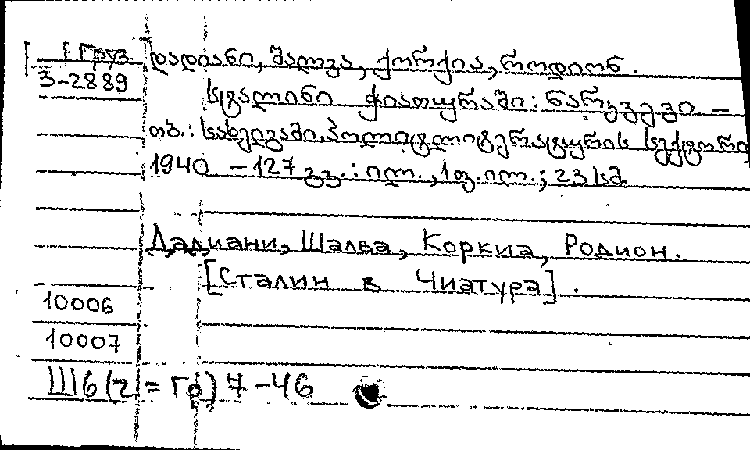 Груз
3-2889
დადიანი, შალვა, ქორქია, როდიონ.
სტალინი ჭიათურაში: ნარკვევი –
თბ.: სახელგამი, პოლიტლიტერატურის სექტორი
1940 – 127 გვ.: ილ., 1ფ. ილ.; 23 სმ.
Дадиани, Шалва, Коркиа, Родион.
[Сталин в Чиатура].
10006
10007
Ш6(2=Гр)7-46